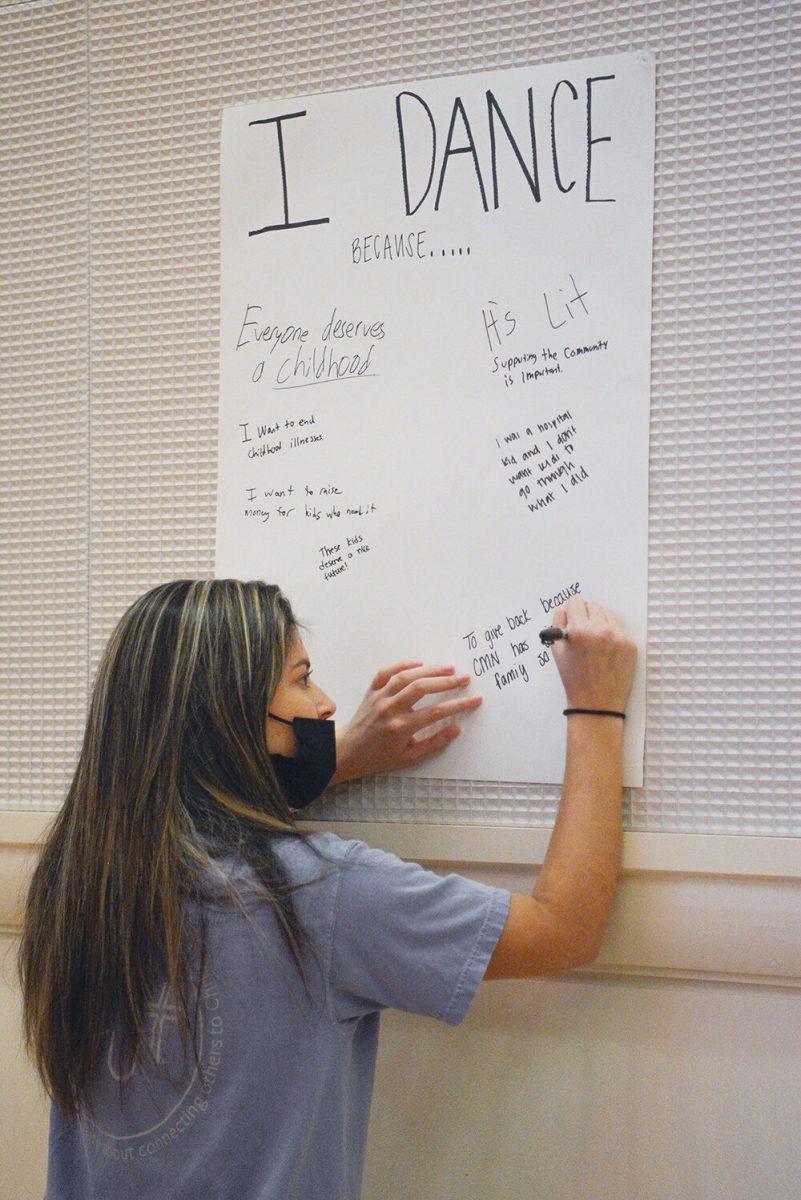 I DANCE
BECAUSE.....
Everyone deserves
a childhood
I want to end
childhood illnesses.
I want to raise
money for kids who need it
These kids
deserve a nice
future!
It's Lit
Supporting the Community
is important.
I was a hospital
kid and I don't
want kids to
go through
what I did
To give back because
CMN has
family so
about connecting others to